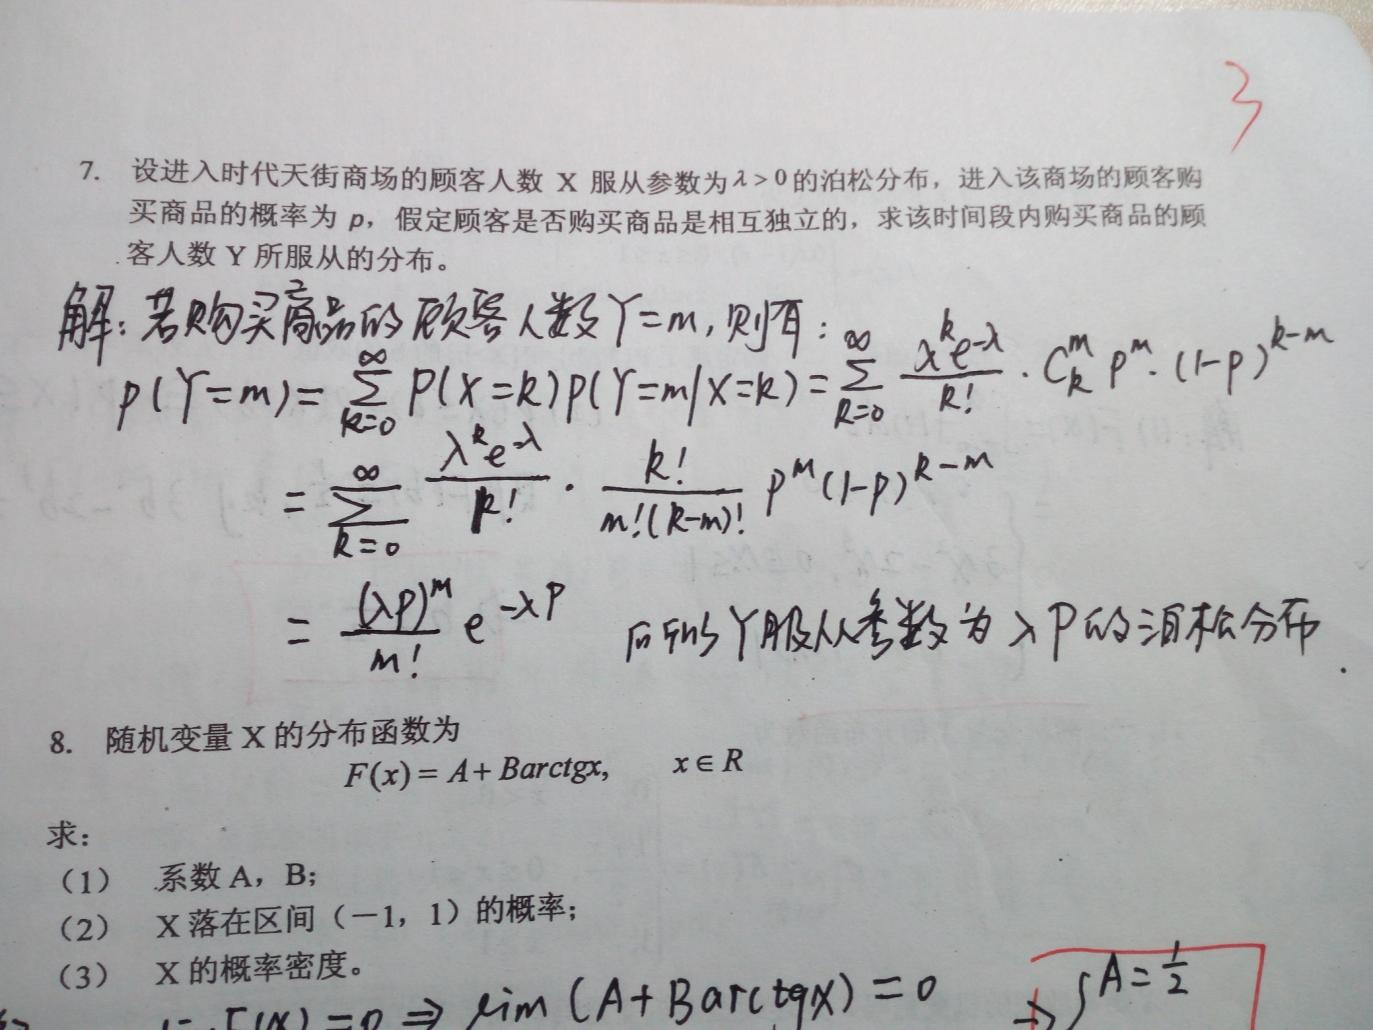 3
7. 设进入时代天街商场的顾客人数 X 服从参数为λ>0的泊松分布，进入该商场的顾客购
买商品的概率为 p，假定顾客是否购买商品是相互独立的，求该时间段内购买商品的顾
客人数 Y 所服从的分布。
解：若购买商品的顾客人数Y=m，则有：
P(Y=m)=∑_{k=0}^{∞} P(X=k)P(Y=m|X=k)=∑_{k=0}^{∞} λ^k e^{-λ}/k! · C_k^m p^m·(1-p)^{k-m}
=∑_{k=0}^{∞} λ^k e^{-λ}/k! · k!/m!(k-m)! p^m(1-p)^{k-m}
=(λp)^m/m! e^{-λp} 所以Y服从参数为λP的泊松分布.
8. 随机变量 X 的分布函数为
F(x) = A + Barctgx, x∈R
求：
（1） 系数 A，B；
（2） X 落在区间（－1，1）的概率；
（3） X 的概率密度。
F(x)=0 ⇒ lim (A+Barctgx)=0 → { A=1/2